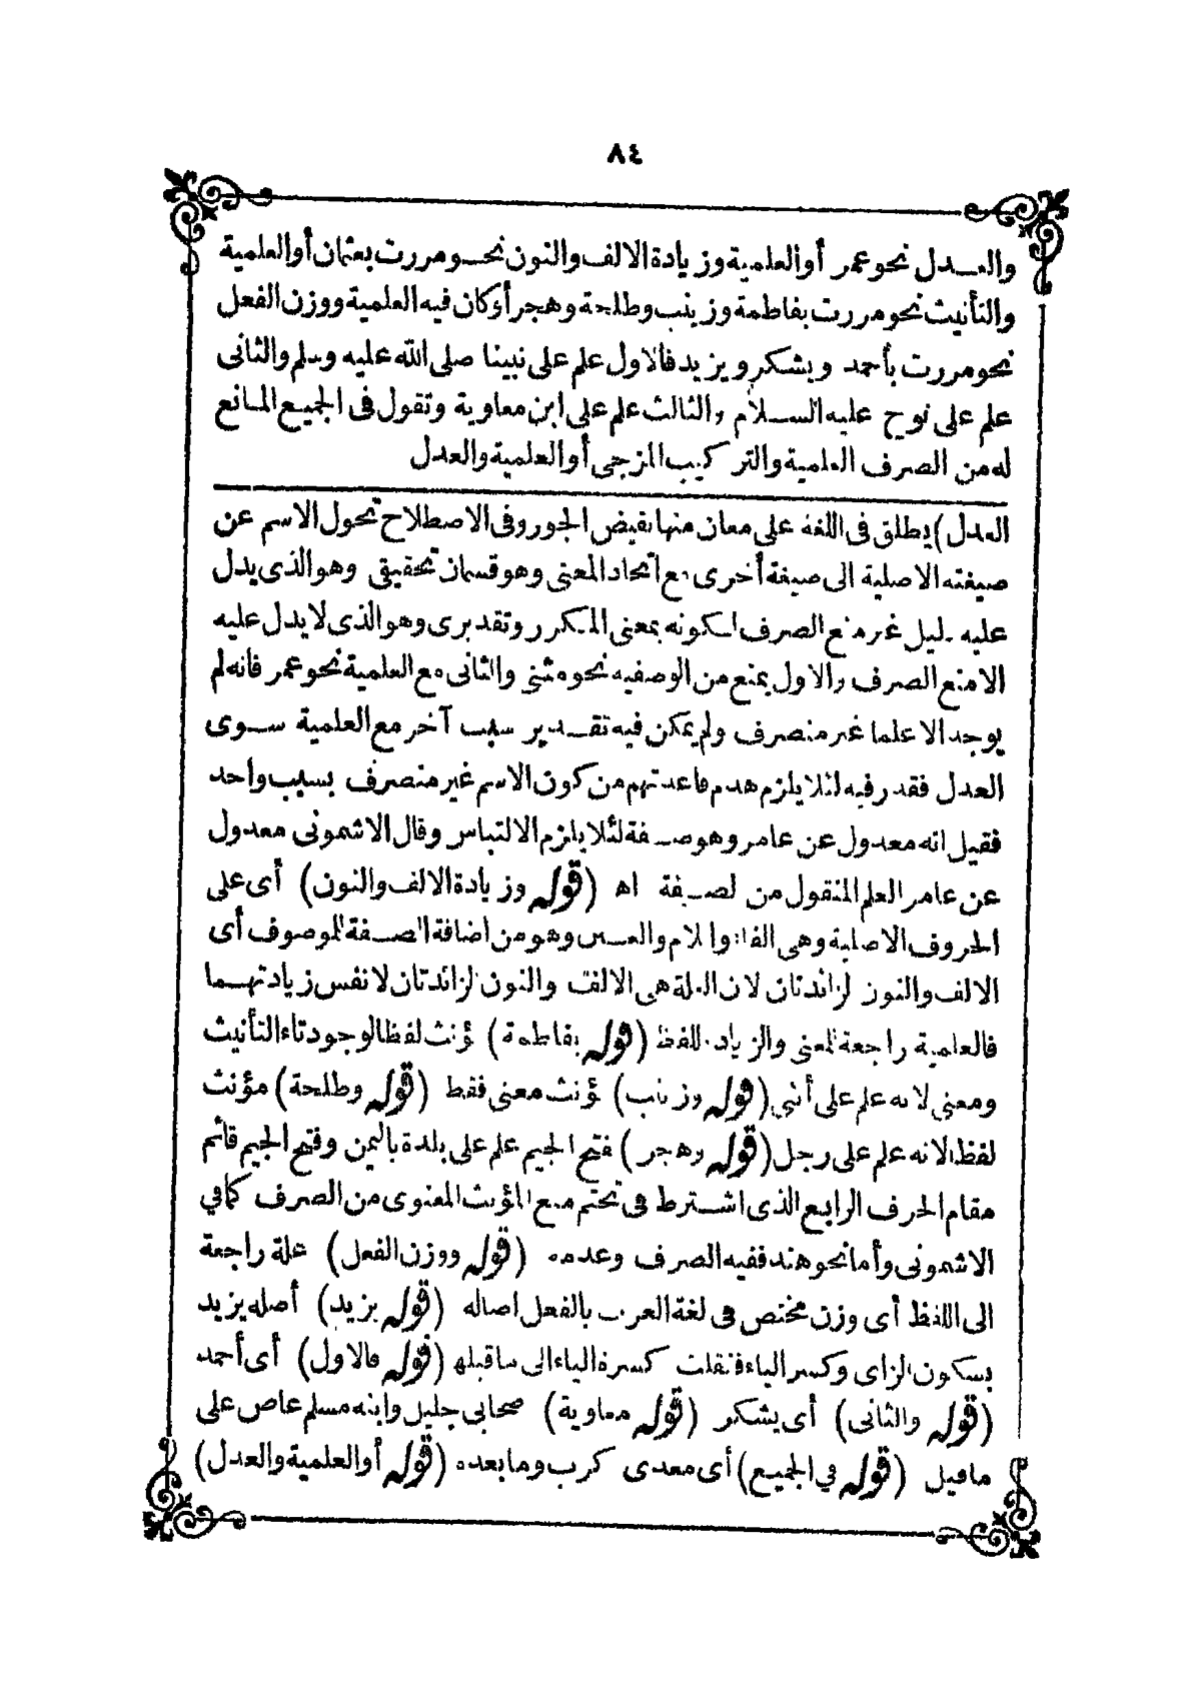 ٨٤
والعدل نحو عمر أو العلمية وزيادة الالف والنون نحو مررت بعثمان أو العلمية
والتأنيث نحو مررت بفاطمة وزينب وطلحة وهجر أو كان فيه العلمية ووزن الفعل
نحو مررت بأحمد ويشكر ويزيد فالاول علم على نبينا صلى الله عليه وسلم والثانى
علم على نوح عليه السلام والثالث علم على ابن معاوية وتقول فى الجميع المانع
له من الصرف العلمية والتركيب المزجى أو العلمية والعدل
العدل) يطلق فى اللغة على معان منها نقيض الجور وفى الاصطلاح تحول الاسم عن
صيغته الاصلية الى صيغة أخرى مع اتحاد المعنى وهو قسمان تحقيقى وهو الذى يدل
عليه دليل غير منع الصرف لكونه بمعنى المكرر وتقديرى وهو الذى لا يدل عليه
الا منع الصرف والاول يمنع من الوصفيه نحو مثنى والثانى مع العلمية نحو عمر فانه لم
يوجد الا علما غير منصرف ولم يمكن فيه تقدير سبب آخر مع العلمية سوى
العدل فقدر فيه لئلا يلزم هدم قاعدتهم من كون الاسم غير منصرف بسبب واحد
فقيل انه معدول عن عامر وهو صفة لئلا يلزم الالتباس وقال الاشمونى معدول
عن عامر العلم المنقول من الصفة اه (قوله وزيادة الالف والنون) أى على
الحروف الاصلية وهى الفاء واللام والعين وهو من اضافة الصفة للموصوف أى
الالف والنون الزائدتان لان العلة هى الالف والنون الزائدتان لا نفس زيادتهما
فالعلمية راجعة للمعنى والزيادة للفظ (قوله بفاطمة) مؤنث لفظا لوجود تاء التأنيث
ومعنى لانه علم على أنثى (قوله وزينب) مؤنث معنى فقط (قوله وطلحة) مؤنث
لفظا لانه علم على رجل (قوله وهجر) بفتح الجيم علم على بلدة باليمن وفتح الجيم قائم
مقام الحرف الرابع الذى اشترط فى تحتم منع المؤنث المعنوى من الصرف كما فى
الاشمونى وأما نحو هند ففيه الصرف وعدمه (قوله ووزن الفعل) علة راجعة
الى اللفظ أى وزن مختص فى لغة العرب بالفعل اصاله (قوله يزيد) أصله يزيد
بسكون الزاى وكسر الياء فنقلت كسرة الياء الى ما قبلها (قوله فالاول) أى أحمد
(قوله والثانى) أى يشكر (قوله معاوية) صحابى جليل وابنه مسلم عاص على
ما قيل (قوله فى الجميع) أى معدى كرب وما بعده (قوله أو العلمية والعدل)